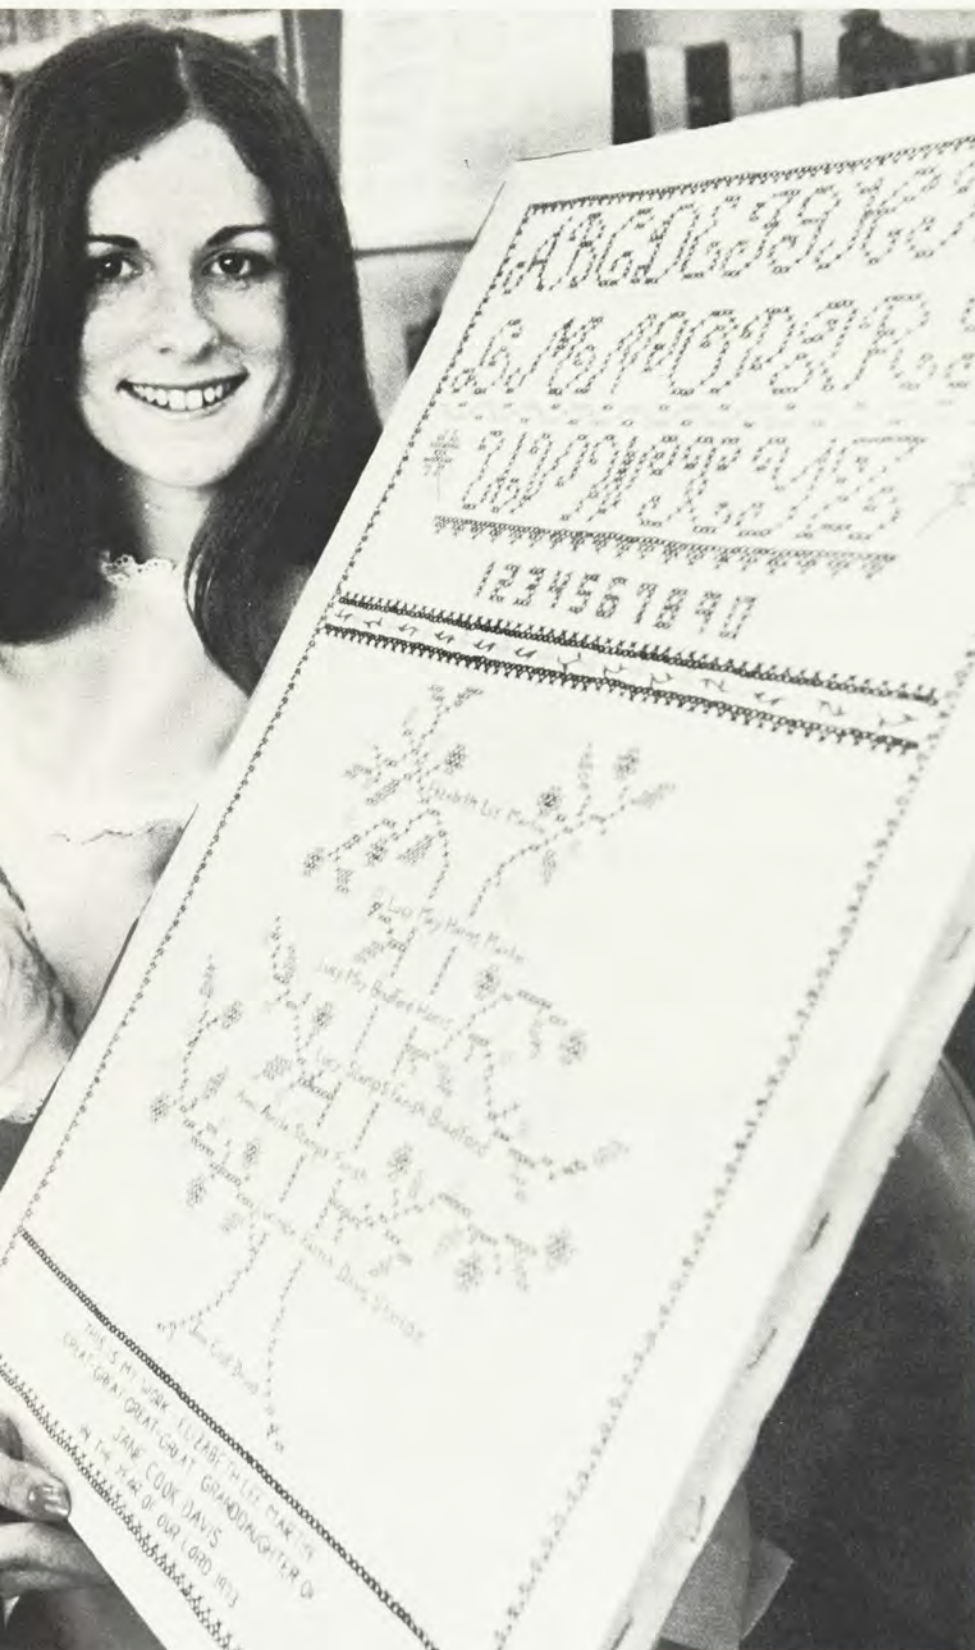 ABCDEFGHIJ
LMNOPQR
UVWXYZ
1234567890
Elizabeth Lee Martin
Lucy May Harris Martin
Lucy May Bradford Harris
Lucy Stamps Farish Bradford
Anna Stamps Farish
Davis Stamps
Jane Cook Davis
THIS IS MY WORK ELIZABETH LEE MARTIN
GREAT-GREAT-GREAT
GREAT-GREAT GRANDDAUGHTER OF
JANE COOK DAVIS
IN THE YEAR OF OUR LORD 1973